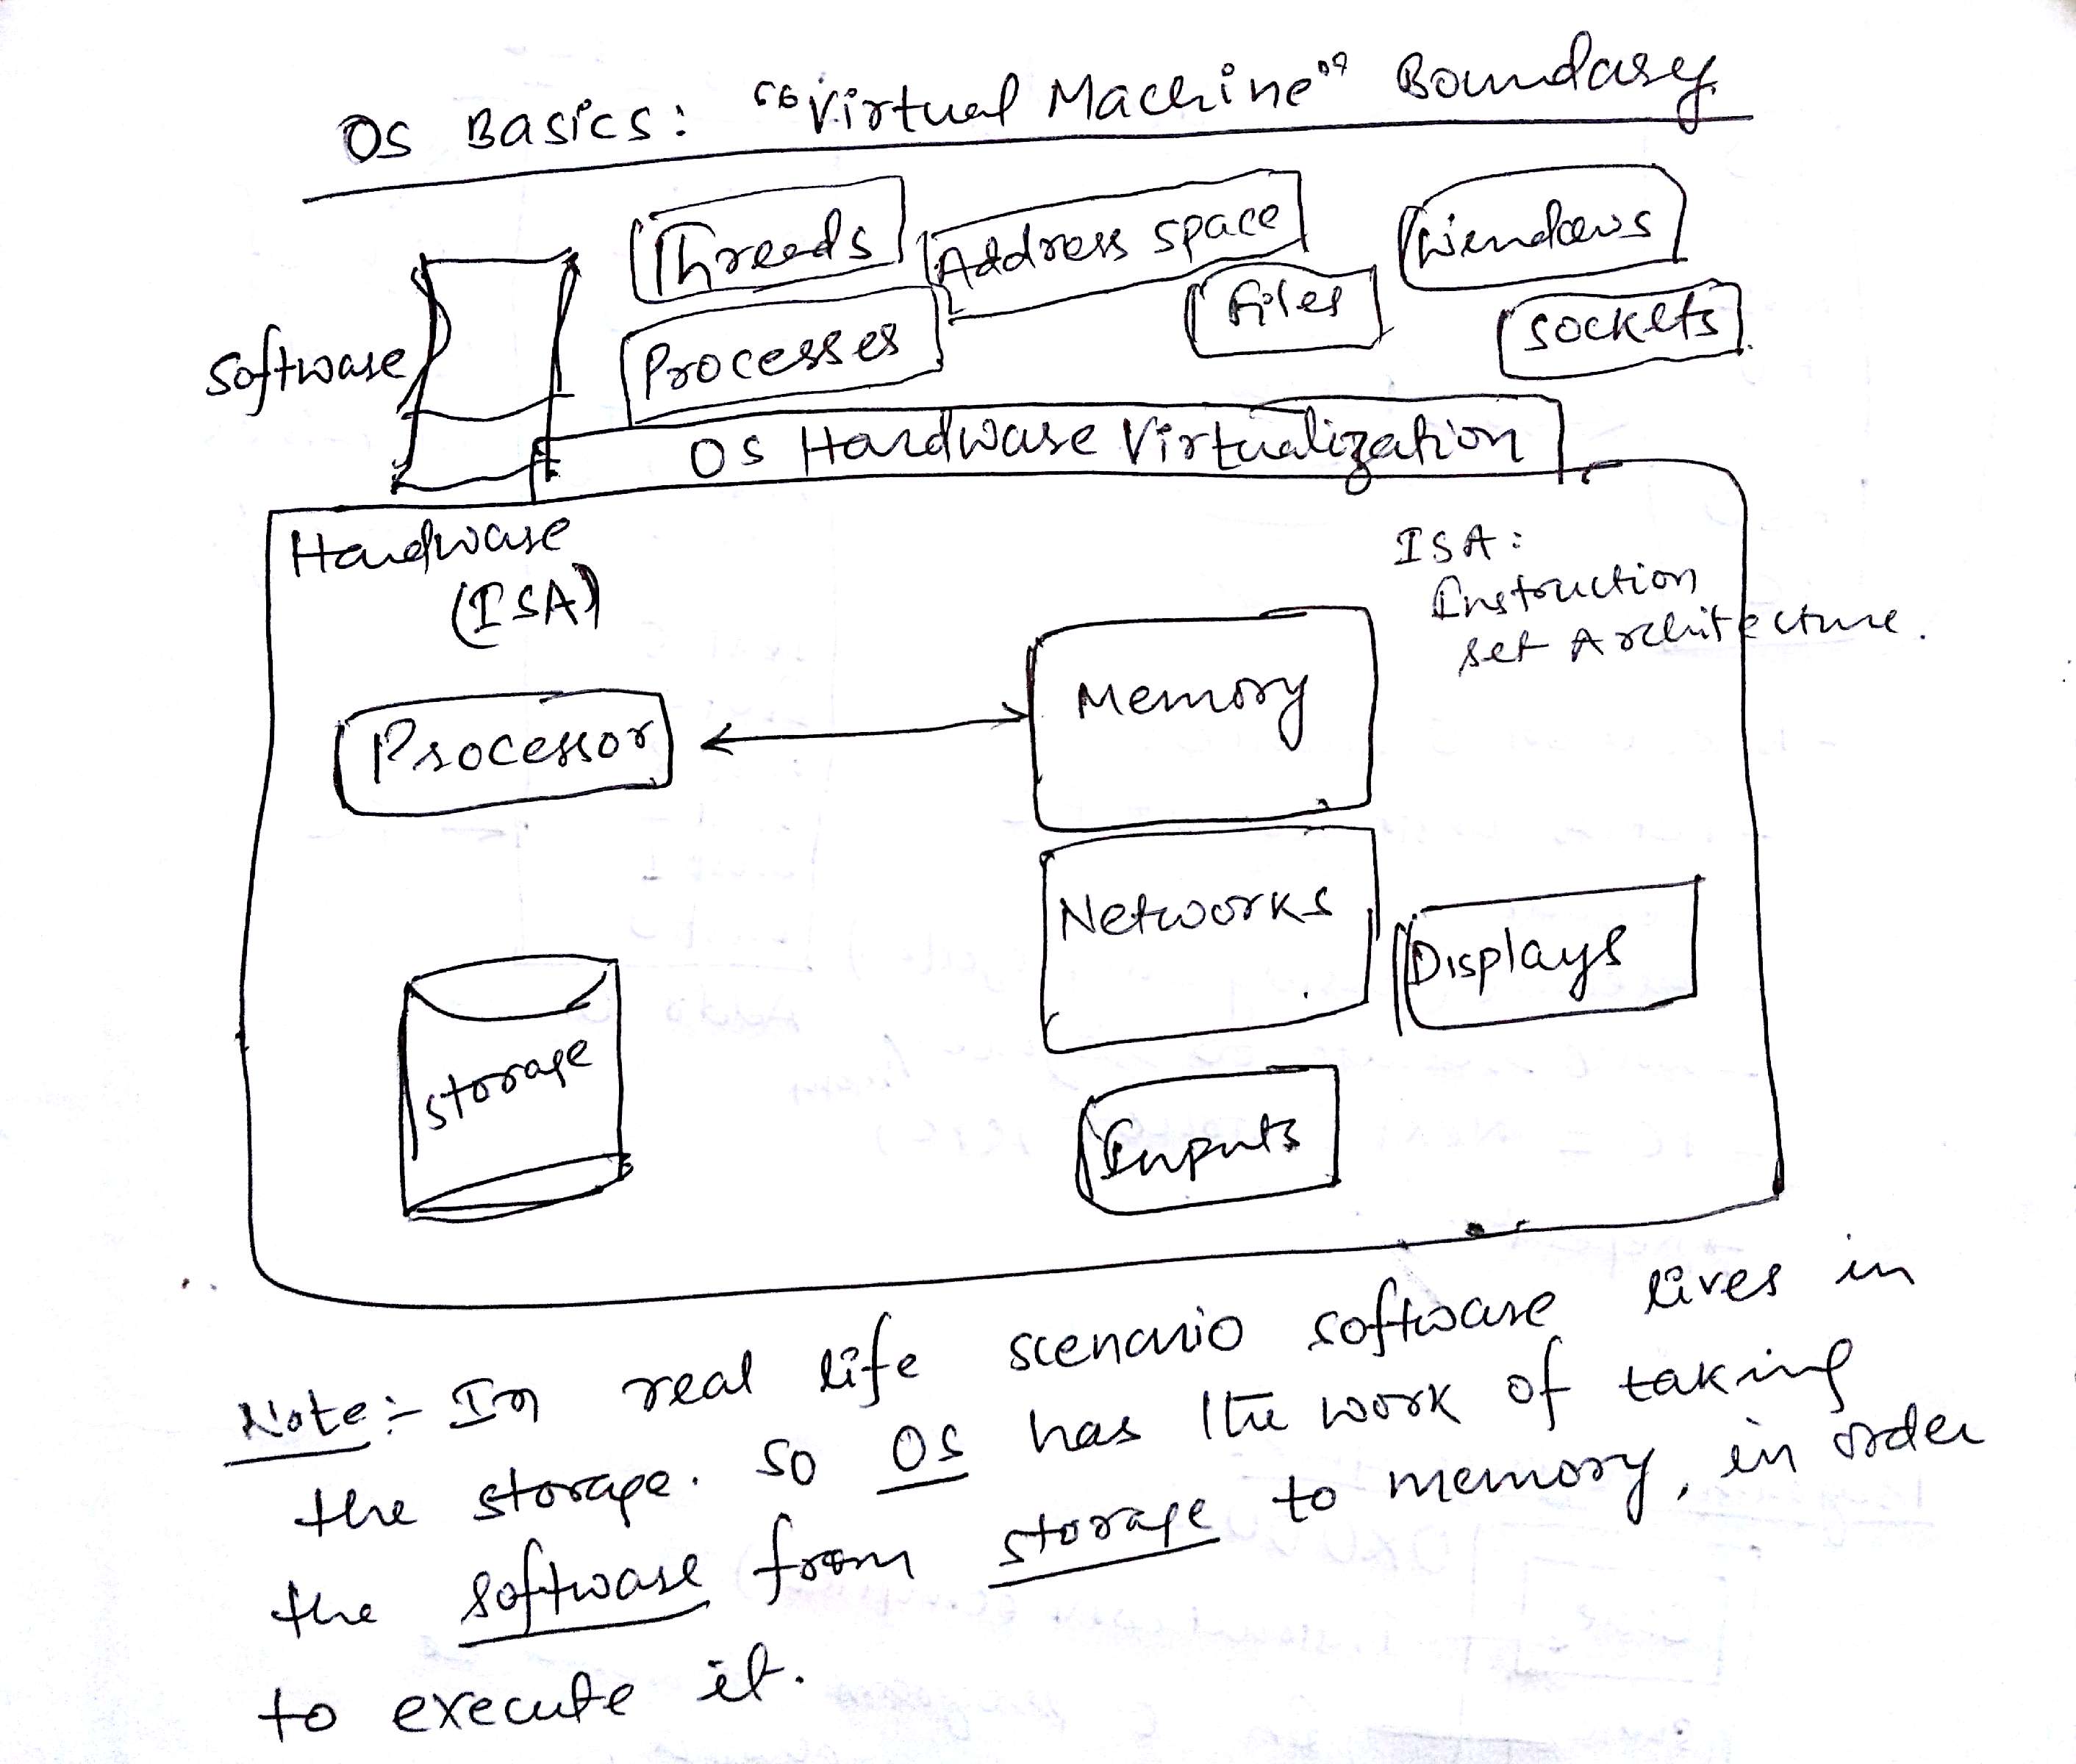 OS Basics: "Virtual Machine" Boundary
Threads
Address space
Windows
Files
Sockets
Software
Processes
OS Hardware Virtualization
Hardware
(ISA)
ISA:
Instruction
Set Architecture.
Memory
Processor
Networks
Displays
Storage
Inputs
Note:- In real life scenario software lives in
the storage. So OS has the work of taking
the software from storage to memory, in order
to execute it.